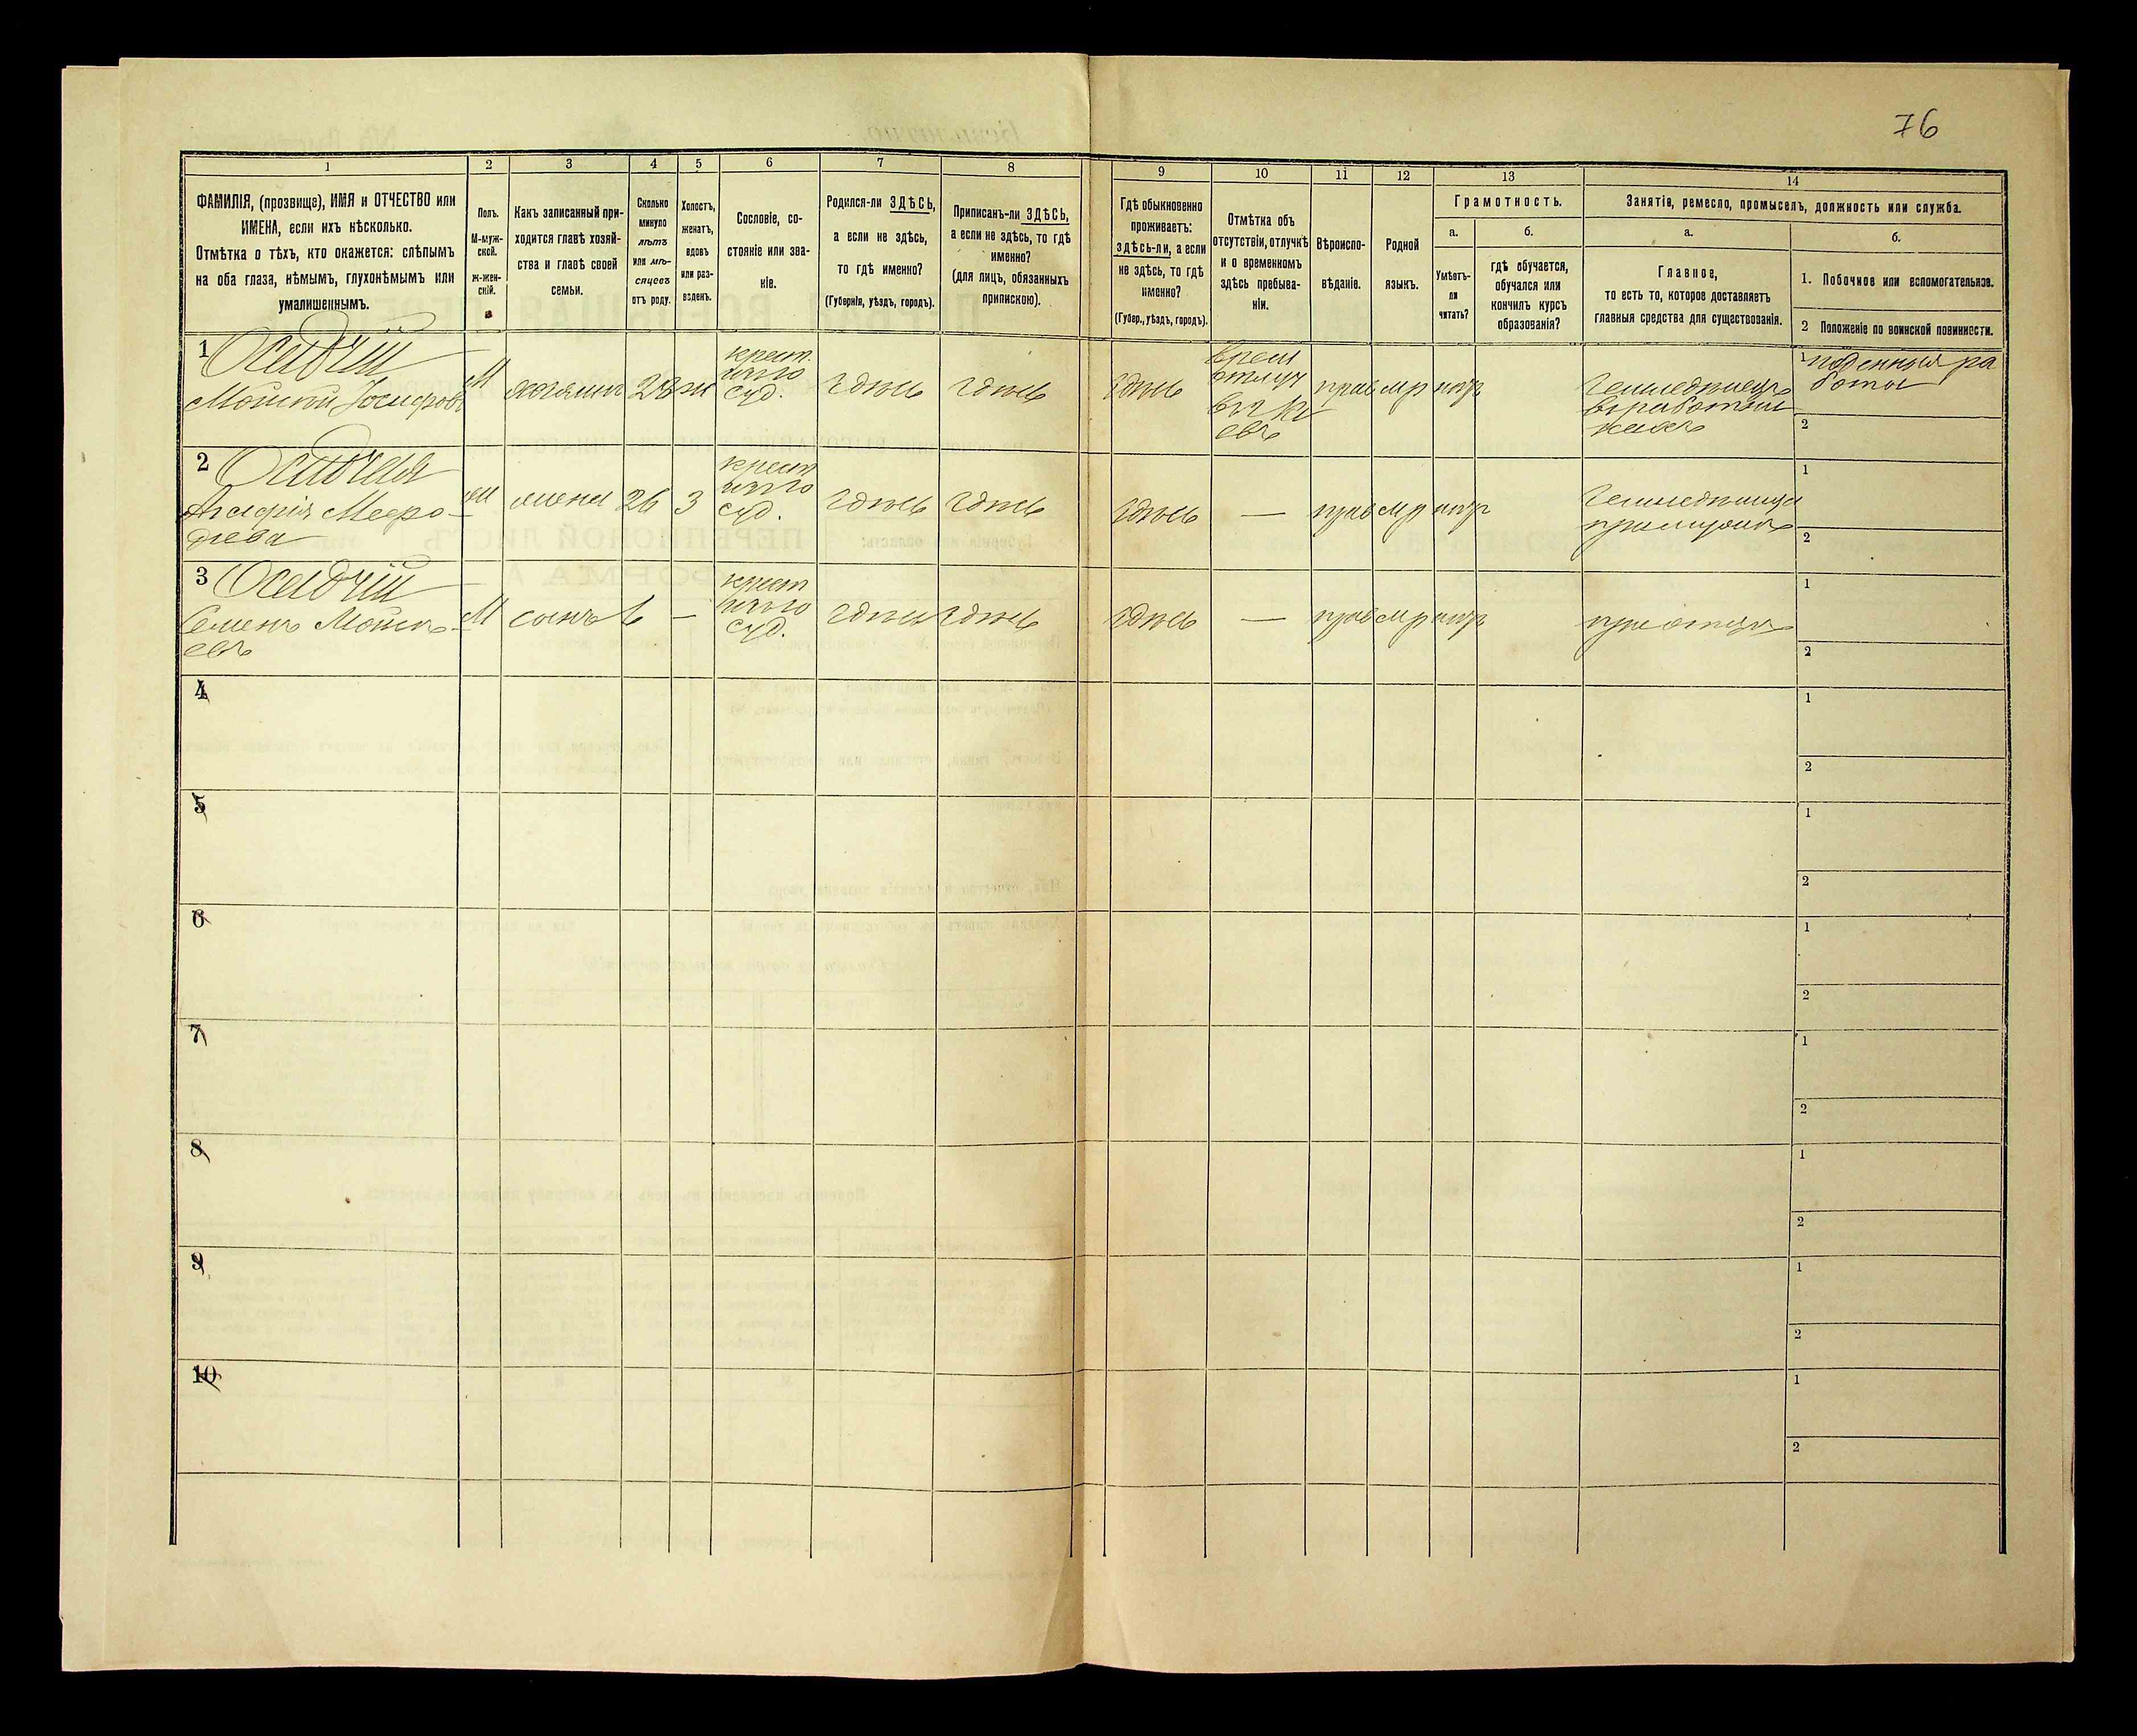 76
1
2
3
4
5
6
7
8
9
10
11
12
13
14
ФАМИЛІЯ, (прозвище), ИМЯ и ОТЧЕСТВО или
ИМЕНА, если ихъ нѣсколько.
Отмѣтка о тѣхъ, кто окажется: слѣпымъ
на оба глаза, нѣмымъ, глухонѣмымъ или
умалишеннымъ.
Полъ.
М-муж-
ской.
ж-жен-
скій.
Какъ записанный при-
ходится главѣ хозяй-
ства и главѣ своей
семьи.
Сколько
минуло
лѣтъ
или мѣ-
сяцевъ
отъ роду.
Холостъ,
женатъ,
вдовъ
или раз-
веденъ.
Сословіе, со-
стояніе или зва-
ніе.
Родился-ли ЗДѢСЬ,
а если не здѣсь,
то гдѣ именно?
(Губернія, уѣздъ, городъ).
Приписанъ-ли ЗДѢСЬ,
а если не здѣсь, то гдѣ
именно?
(для лицъ, обязанныхъ
припискою).
Гдѣ обыкновенно
проживаетъ:
здѣсь-ли, а если
не здѣсь, то гдѣ
именно?
(Губер., уѣздъ, городъ).
Отмѣтка объ
отсутствіи, отлучкѣ
и о временномъ
здѣсь пребыва-
ніи.
Вѣроиспо-
вѣданіе.
Родной
языкъ.
Грамотность.
а.
Умѣетъ-
ли
читать?
б.
гдѣ обучается,
обучался или
кончилъ курсъ
образованія?
Занятіе, ремесло, промыселъ, должность или служба.
а.
Главное,
то есть то, которое доставляетъ
главныя средства для существованія.
б.
1. Побочное или вспомогательное.
2 Положеніе по воинской повинности.
1 Осадчій
Мойсей Іосифовъ
М
хозяинъ
28
ж
крест.
суд.
здѣсь
здѣсь
здѣсь
врем
отлуч
въ Кі
евъ
прав
мр
нѣт
Земледѣлецъ
1 поденныя ра
боты
2
2 Осадчая
Агафія Мефо-
діева
жена
26
З
крест
суд.
здѣсь
здѣсь
здѣсь
—
прав
мр
нѣт
Земледѣлица
при мужѣ
1
2
3 Осадчій
Семенъ Мойсе-
евъ
М
сынъ
6
—
крест
суд.
здѣсь
здѣсь
здѣсь
—
прав
мр
нѣт
при отцѣ
1
2
4
1
2
5
1
2
6
1
2
7
1
2
8
1
2
9
1
2
10
1
2